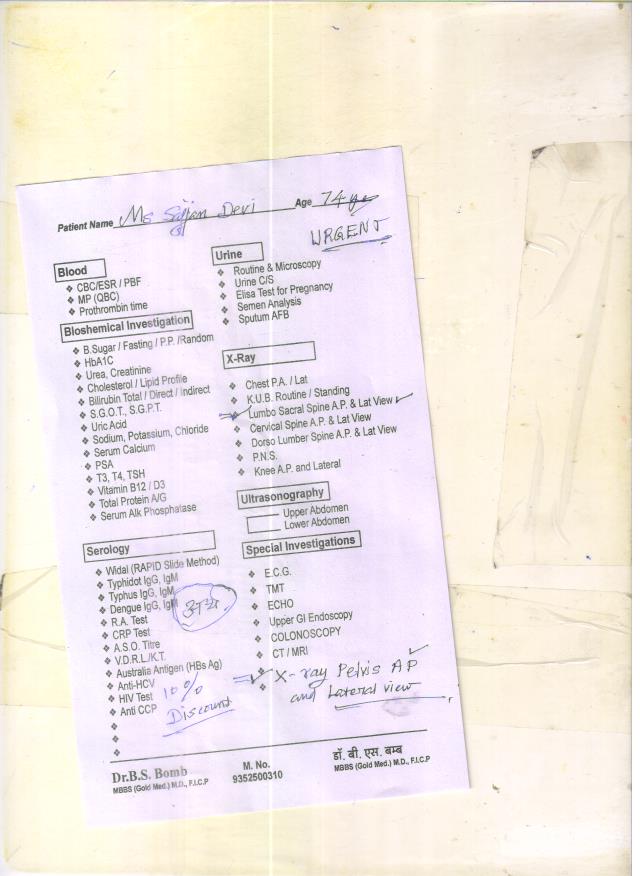 Patient Name Ms Sajjan Devi Age 74 ye
URGENT
Blood
❖ CBC/ESR / PBF
❖ MP (QBC)
❖ Prothrombin time
Bioshemical Investigation
❖ B.Sugar / Fasting / P.P. /Random
❖ HbA1C
❖ Urea, Creatinine
❖ Cholesterol / Lipid Profile
❖ Bilirubin Total / Direct / Indirect
❖ S.G.O.T., S.G.P.T.
❖ Uric Acid
❖ Sodium, Potassium, Chloride
❖ Serum Calcium
❖ PSA
❖ T3, T4, TSH
❖ Vitamin B12 / D3
❖ Total Protein A/G
❖ Serum Alk Phosphatase
Serology
❖ Widal (RAPID Slide Method)
❖ Typhidot IgG, IgM
❖ Typhus IgG, IgM
❖ Dengue IgG, IgM
❖ R.A. Test
❖ CRP Test
❖ A.S.O. Titre
❖ V.D.R.L./K.T.
❖ Australia Antigen (HBs Ag)
❖ Anti-HCV
❖ HIV Test
❖ Anti CCP
10%
Discount
Urine
❖ Routine & Microscopy
❖ Urine C/S
❖ Elisa Test for Pregnancy
❖ Semen Analysis
❖ Sputum AFB
X-Ray
❖ Chest P.A. / Lat
❖ K.U.B. Routine / Standing
❖ Lumbo Sacral Spine A.P. & Lat View ✓
❖ Cervical Spine A.P. & Lat View
❖ Dorso Lumber Spine A.P. & Lat View
❖ P.N.S.
❖ Knee A.P. and Lateral
Ultrasonography
Upper Abdomen
Lower Abdomen
Special Investigations
❖ E.C.G.
❖ TMT
❖ ECHO
❖ Upper GI Endoscopy
❖ COLONOSCOPY
❖ CT / MRI
X-ray Pelvis AP ✓
and Lateral view
Dr.B.S. Bomb
MBBS (Gold Med.) M.D., F.I.C.P
M. No.
9352500310
डॉ. बी. एस. बम्ब
MBBS (Gold Med.) M.D., F.I.C.P